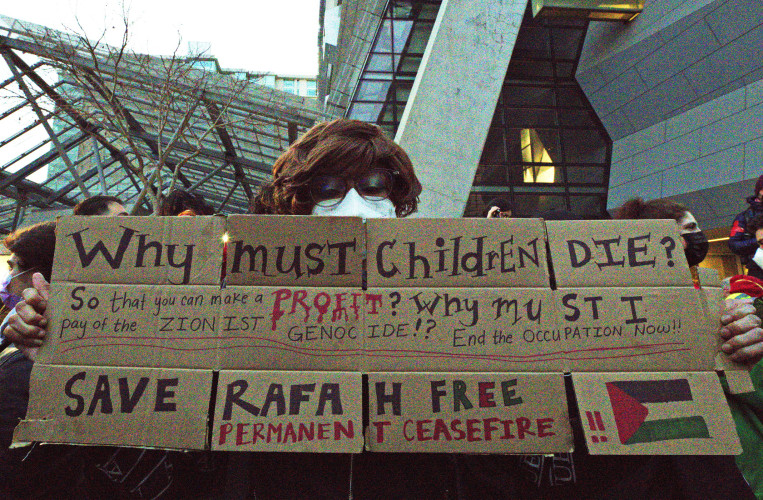 Why must Children DIE?
So that you can make a PROFIT? Why muST I
pay of the ZIONIST GENOCIDE!? End the OCCUPATION NOW!!
SAVE RAFAH FREE
PERMANENT CEASEFIRE !!